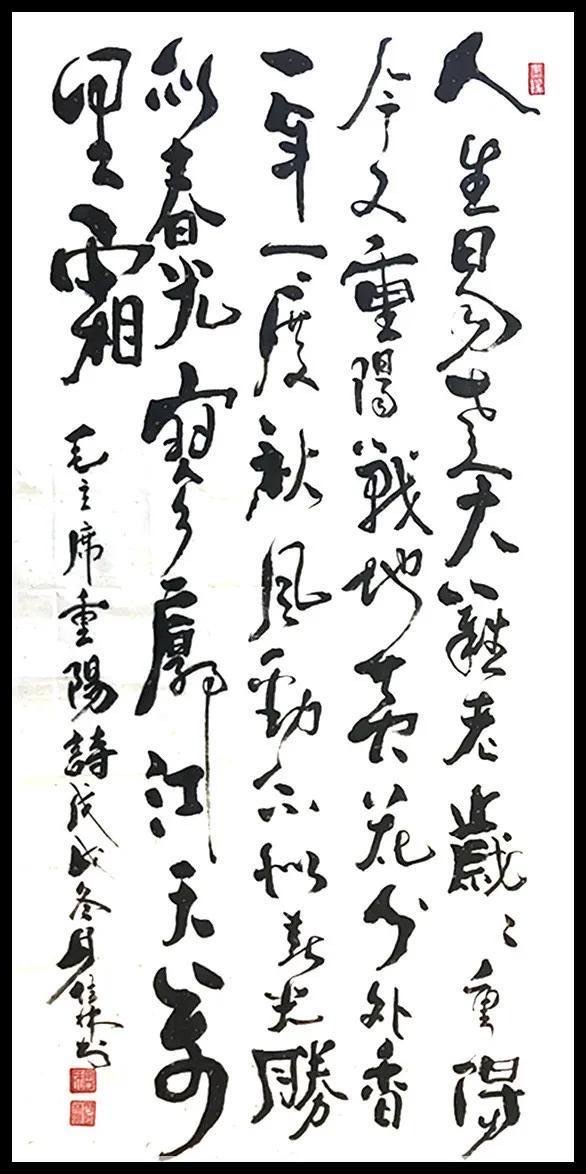 人生易老天難老歲〻重陽
今又重陽戰地黃花分外香
一年一度秋風勁不似春光勝
似春光寥廓江天萬
里霜
毛主席重陽詩戊戌冬月